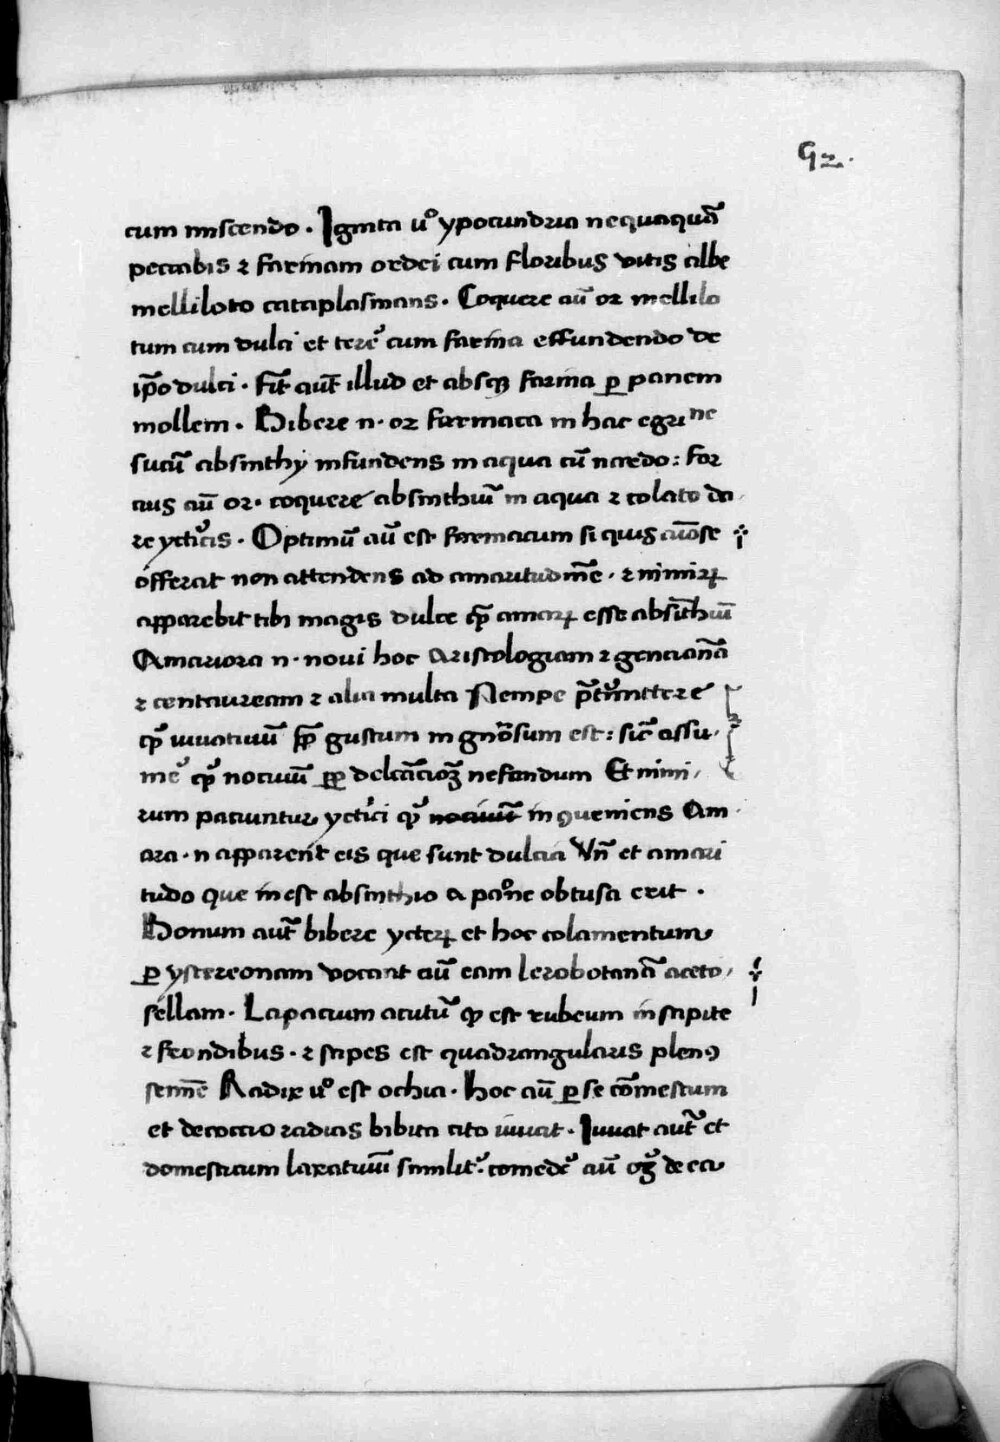 92.
cum miscendo. Ignita uº ypocundria nequaquā
peciabis ⁊ farinam ordei cum floribus vitis albe
melliloto cataplasmans. Coquere aū oꝫ mellilo
tum cum dulci et tere᷒ cum farina effundendo de
ip̄o dulci. fit̄ aut̄ illud et absqꝫ farina ꝑ panem
mollem. Bibere n. oꝫ farmaca in hac egriⁿᵉ
sucū absinthy infundens in aqua cū nardo: for
cius aū oꝫ. coquere absinthiū in aqua ⁊ colato da
re ycticis. Optimū aū est farmacum si quis
offerat non attendens ad amaritudinē. ⁊ nimiꝝ
apparebit tibi magis dulce qᷓ amaꝝ esse absīthiū
Amariora n. novi hoc aristologiam ⁊ gencianā
⁊ centauream ⁊ alia multa Nempe
qᷓ iuuatiuū gustum in est: sic̄ assu.
me᷒ qᷓ nociuū nefandum Et nimi,
rum paciuntur yctici qᷓ nociuū inqueniens Am
ara. n apparent eis que sunt dulcia Vn̄ et amari
tudo que inest absinthio a obtusa erit.
Bonum aut̄ bibere ycteꝝ et hoc colamentum
ꝑ ystereonam vocant aū eam Ierobotanā aceto,
sellam. Lapacium acutū qꝫ est rubeum in stipite
⁊ frondibus. ⁊ stipes est quadrangularis plenꝰ
semīe Radix uº est ochia. hoc aū ꝑ se cōmestum
et decoctio radicis bibita cito iuuat. Iuuat aut̄ et
domesticum laxatiuū similit᷒. comede᷒ aū oꝫ de ea